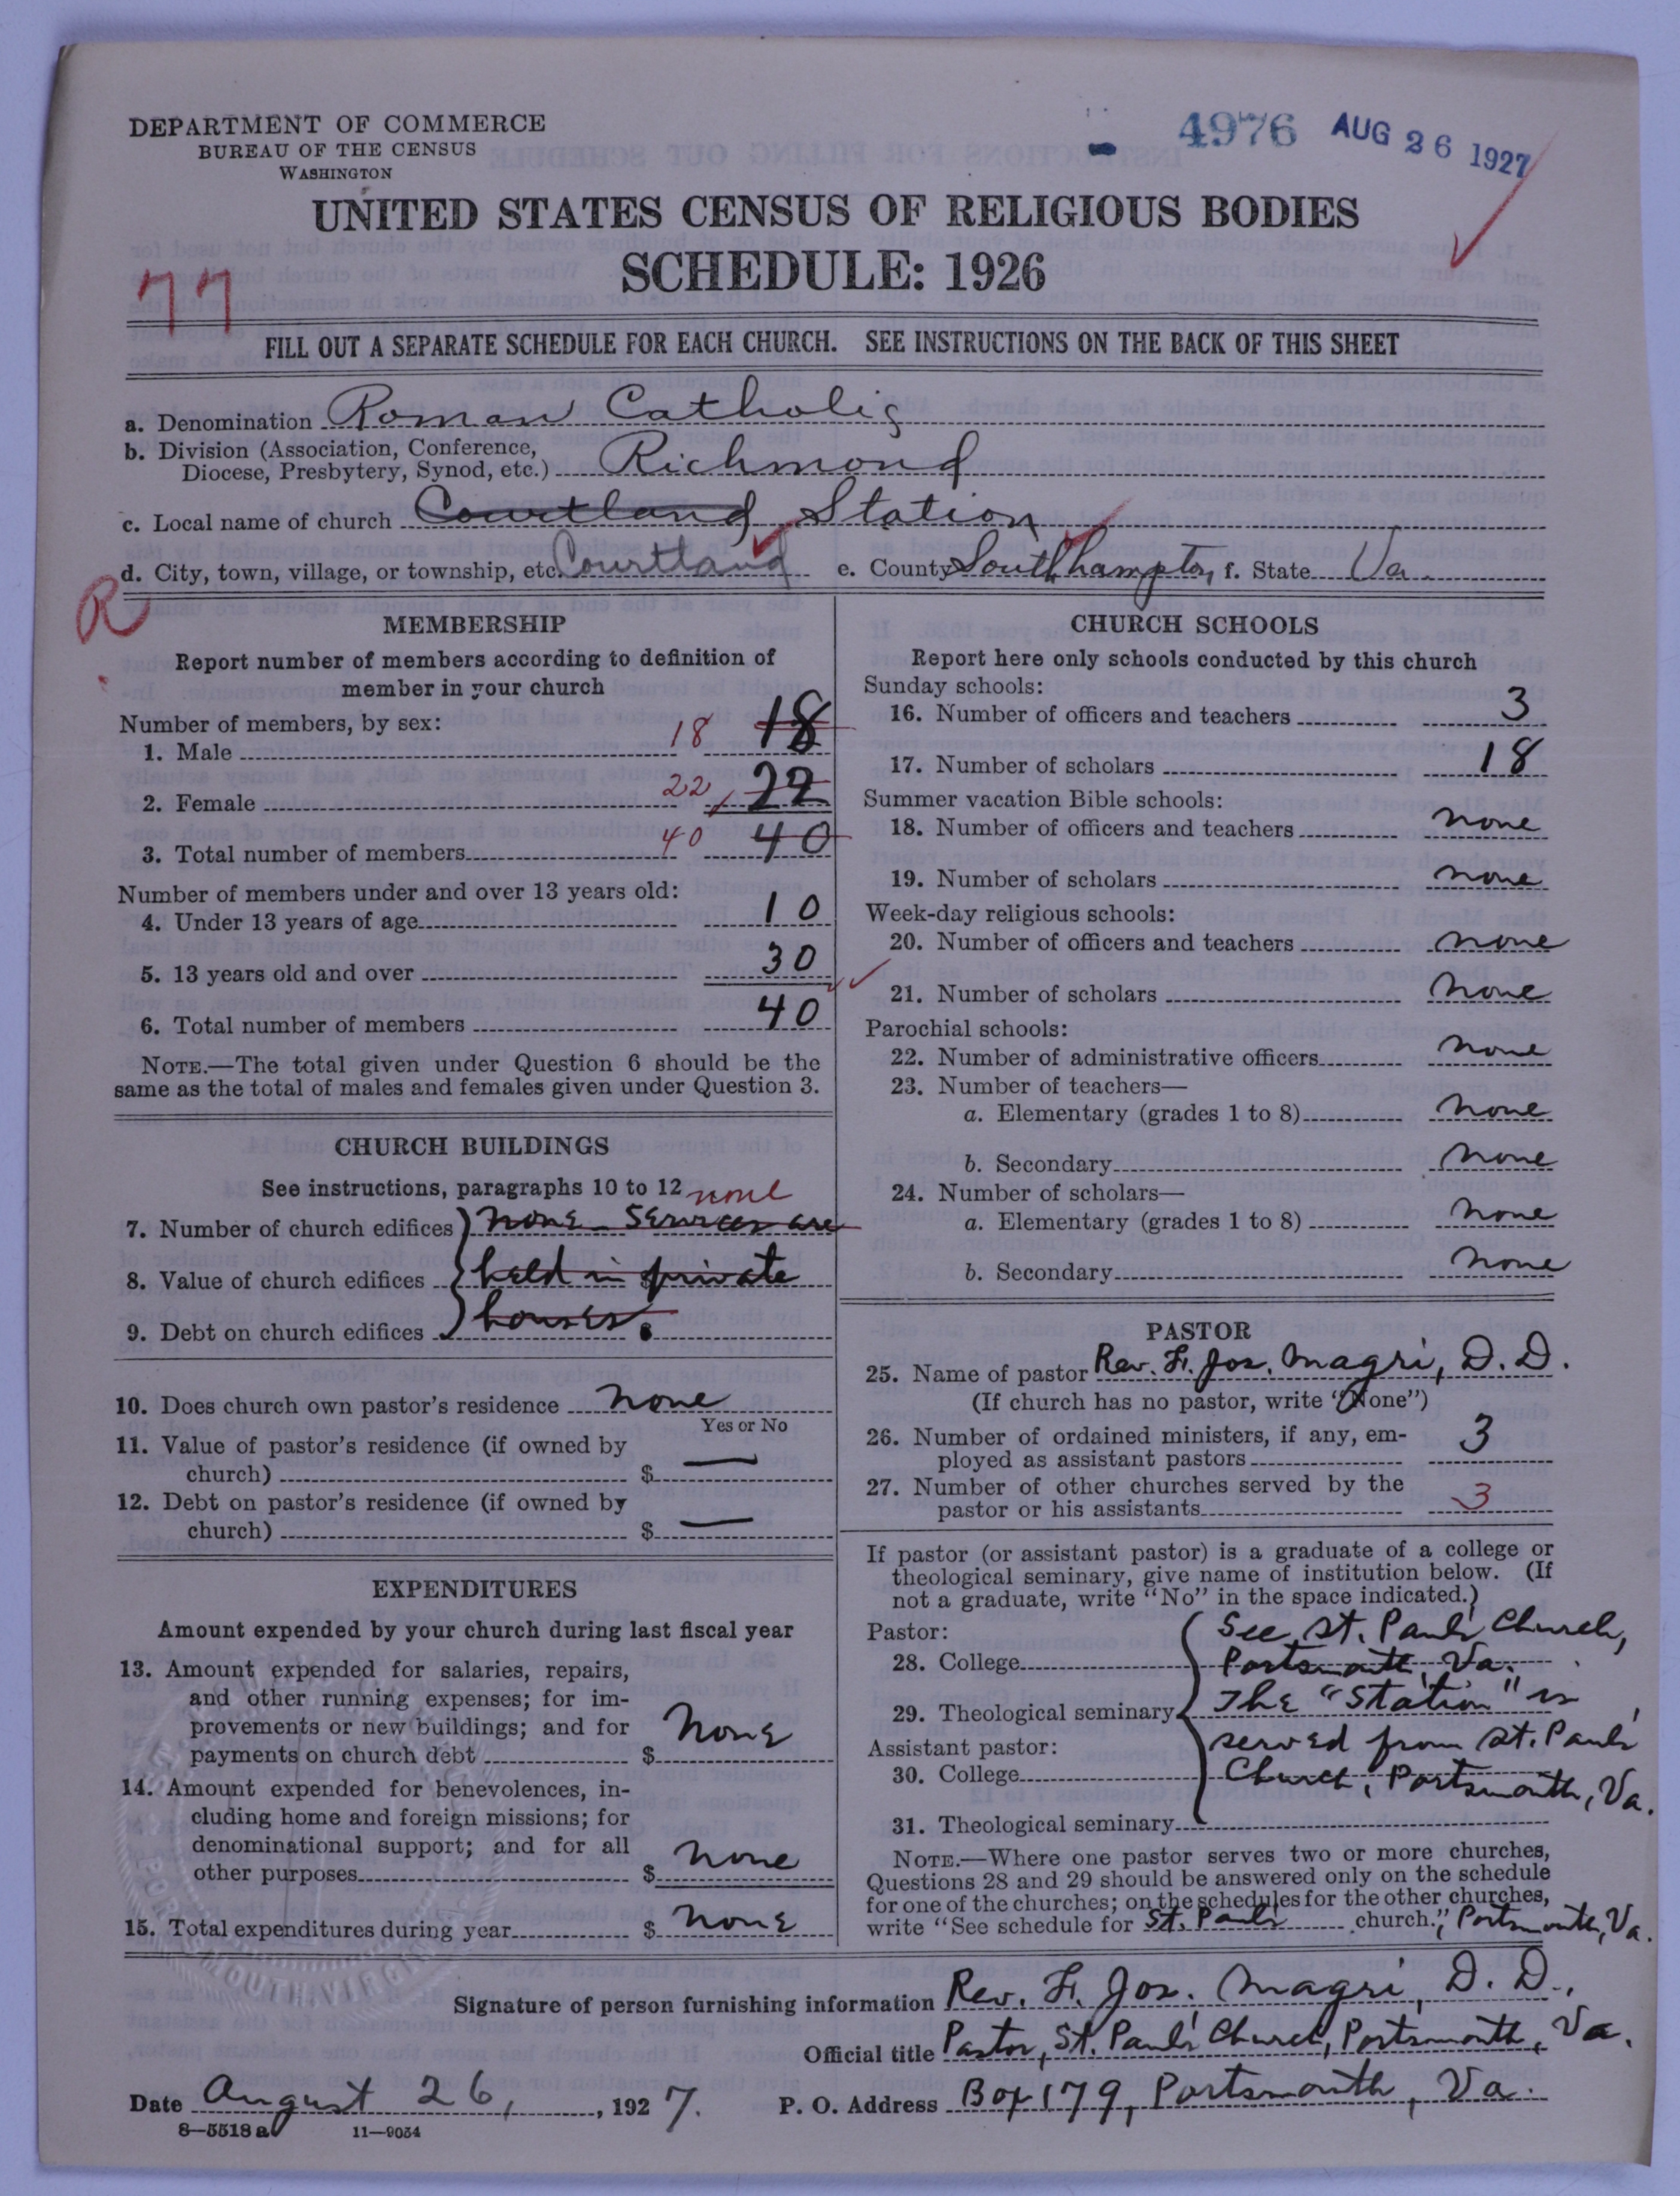 DEPARTMENT OF COMMERCE
BUREAU OF THE CENSUS
WASHINGTON
4976 AUG 26 1927
UNITED STATES CENSUS OF RELIGIOUS BODIES
SCHEDULE: 1926
77
FILL OUT A SEPARATE SCHEDULE FOR EACH CHURCH. SEE INSTRUCTIONS ON THE BACK OF THIS SHEET
a. Denomination Roman Catholic
b. Division (Association, Conference,
Diocese, Presbytery, Synod, etc.) Richmond
c. Local name of church Courtland Station
d. City, town, village, or township, etc. Courtland e. County Southhampton, f. State Va.
R
MEMBERSHIP
Report number of members according to definition of
member in your church
Number of members, by sex:
1. Male 18 18
2. Female 22 22
3. Total number of members 40 40
Number of members under and over 13 years old:
4. Under 13 years of age 10
5. 13 years old and over 30
6. Total number of members 40
NOTE.—The total given under Question 6 should be the
same as the total of males and females given under Question 3.
CHURCH BUILDINGS
See instructions, paragraphs 10 to 12 none
7. Number of church edifices none Services are
8. Value of church edifices held in $ private
9. Debt on church edifices houses. $
10. Does church own pastor's residence none
Yes or No
11. Value of pastor's residence (if owned by
church) $ —
12. Debt on pastor's residence (if owned by
church) $ —
EXPENDITURES
Amount expended by your church during last fiscal year
13. Amount expended for salaries, repairs,
and other running expenses; for im-
provements or new buildings; and for
payments on church debt $ None
14. Amount expended for benevolences, in-
cluding home and foreign missions; for
denominational support; and for all
other purposes $ none
15. Total expenditures during year $ none
CHURCH SCHOOLS
Report here only schools conducted by this church
Sunday schools:
16. Number of officers and teachers 3
17. Number of scholars 18
Summer vacation Bible schools:
18. Number of officers and teachers none
19. Number of scholars none
Week-day religious schools:
20. Number of officers and teachers none
21. Number of scholars none
Parochial schools:
22. Number of administrative officers none
23. Number of teachers—
a. Elementary (grades 1 to 8) none
b. Secondary none
24. Number of scholars—
a. Elementary (grades 1 to 8) none
b. Secondary none
PASTOR
25. Name of pastor Rev. F. Jos. Magri, D. D.
(If church has no pastor, write "None")
26. Number of ordained ministers, if any, em-
ployed as assistant pastors 3
27. Number of other churches served by the
pastor or his assistants 3
If pastor (or assistant pastor) is a graduate of a college or
theological seminary, give name of institution below. (If
not a graduate, write "No" in the space indicated.)
Pastor: See St. Paul's Church,
28. College Portsmouth, Va.
29. Theological seminary The "Station" is
Assistant pastor: served from St. Paul's
30. College Church, Portsmouth, Va.
31. Theological seminary
NOTE.—Where one pastor serves two or more churches,
Questions 28 and 29 should be answered only on the schedule
for one of the churches; on the schedules for the other churches,
write "See schedule for St. Paul's church.", Portsmouth, Va.
Signature of person furnishing information Rev. F. Jos. Magri, D. D.,
Official title Pastor, St. Paul's Church, Portsmouth, Va.
Date August 26, 1927. P. O. Address Box 179, Portsmouth, Va.
8—5518 a 11—9034